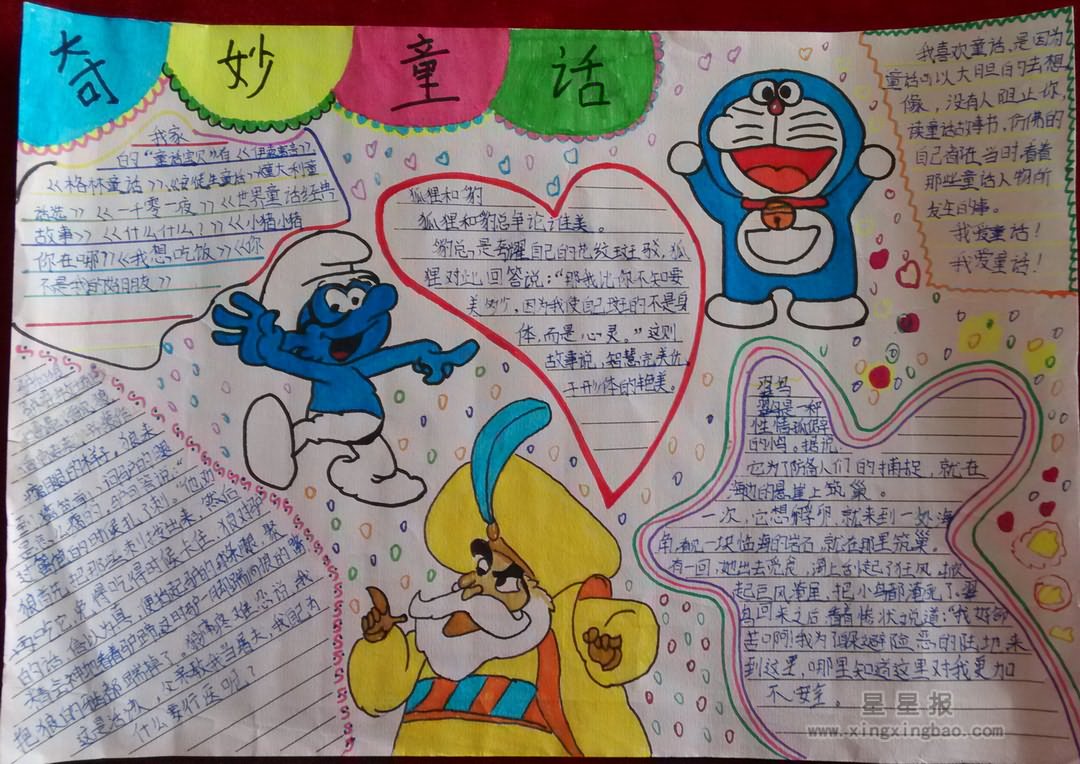 奇妙童话
我家
的"童话宝贝"有《伊索寓言》、
《格林童话》、《安徒生童话》《意大利童
话选》《一千零一夜》《世界童话经典
故事》《什么什么?》《小猪小猪
你在哪?》《我想吃饭》《你
不是我的朋友》
狐狸和豹
狐狸和豹总争论谁美。
豹总是夸耀自己的花纹斑驳,狐
狸对此回答说:"那我比你不知要
美妙,因为我使自己斑的不是身
体,而是心灵。"这则
故事说,智慧完美优
于形体的艳美。
我喜欢童话,是因为
童话可以大胆的去想
像,没有人阻止你,
读童话故事书,仿佛的
自己都在当时,看着
那些童话人物所
发生的事。
我爱童话!
我爱童话!
翠鸟
翠鸟是一种
性情孤僻
的鸟。据说
它为了防备人们的捕捉,就在
海边的悬崖上筑巢。
一次,它想孵卵,就来到一处海
角,看见一块临海的岩石,就在那里筑巢。
有一回,她出去觅食,海上刮起了狂风,掀
起巨风海里,把小鸟都淹死了,翠
鸟回来之后看着惨状说道:"我好命
苦啊!我为了躲避险恶的陆地,来
到这里,哪里知道这里对我更加
不安全。
瘸腿的样子,狼来
然后
再吃它,免得吃得时候卡住,狼对驴
的话信以为真,便抬起驴的
把狼的牙
这是活该,父亲教我当屠夫,我干
什么要行医呢?
星星报
www.xingxingbao.com